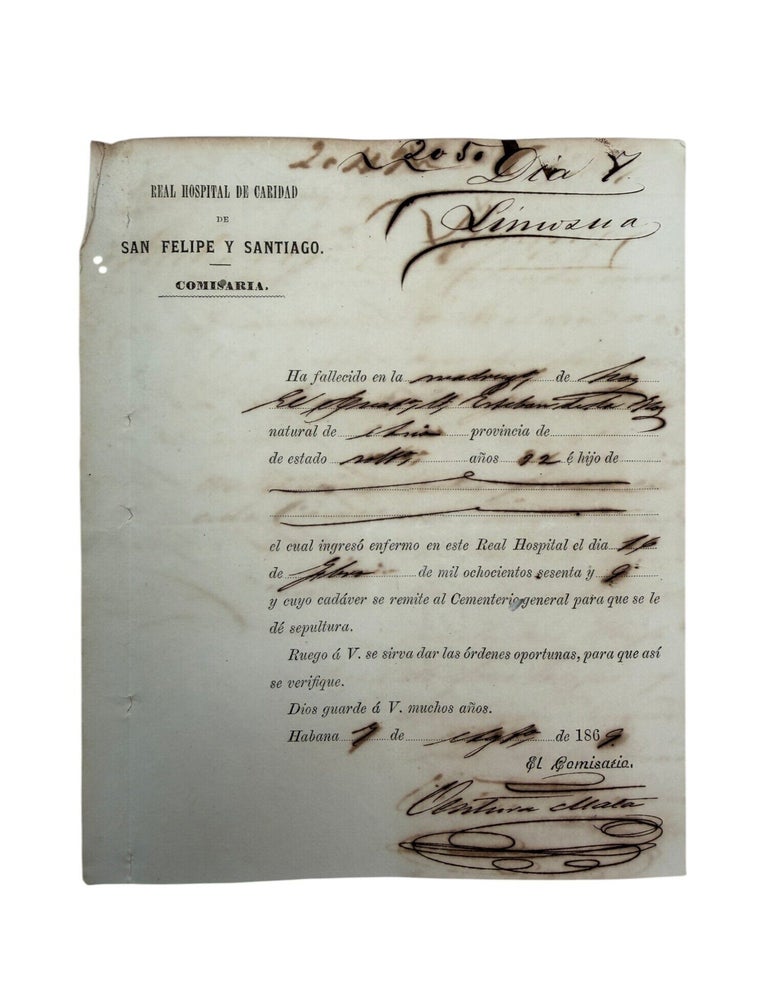 2050
Dia 7
REAL HOSPITAL DE CARIDAD
DE
SAN FELIPE Y SANTIAGO.
COMISARIA.
Limosna
Ha fallecido en la madrugª de hoy
El Esteban
natural de China provincia de
de estado años 22 é hijo de
el cual ingresó enfermo en este Real Hospital el dia 16
de Febro de mil ochocientos sesenta y 9
y cuyo cadáver se remite al Cementerio general para que se le
dé sepultura.
Ruego á V. se sirva dar las órdenes oportunas, para que así
se verifique.
Dios guarde á V. muchos años.
Habana 7 de Agto de 1869.
El Comisario.
Ventura Mata